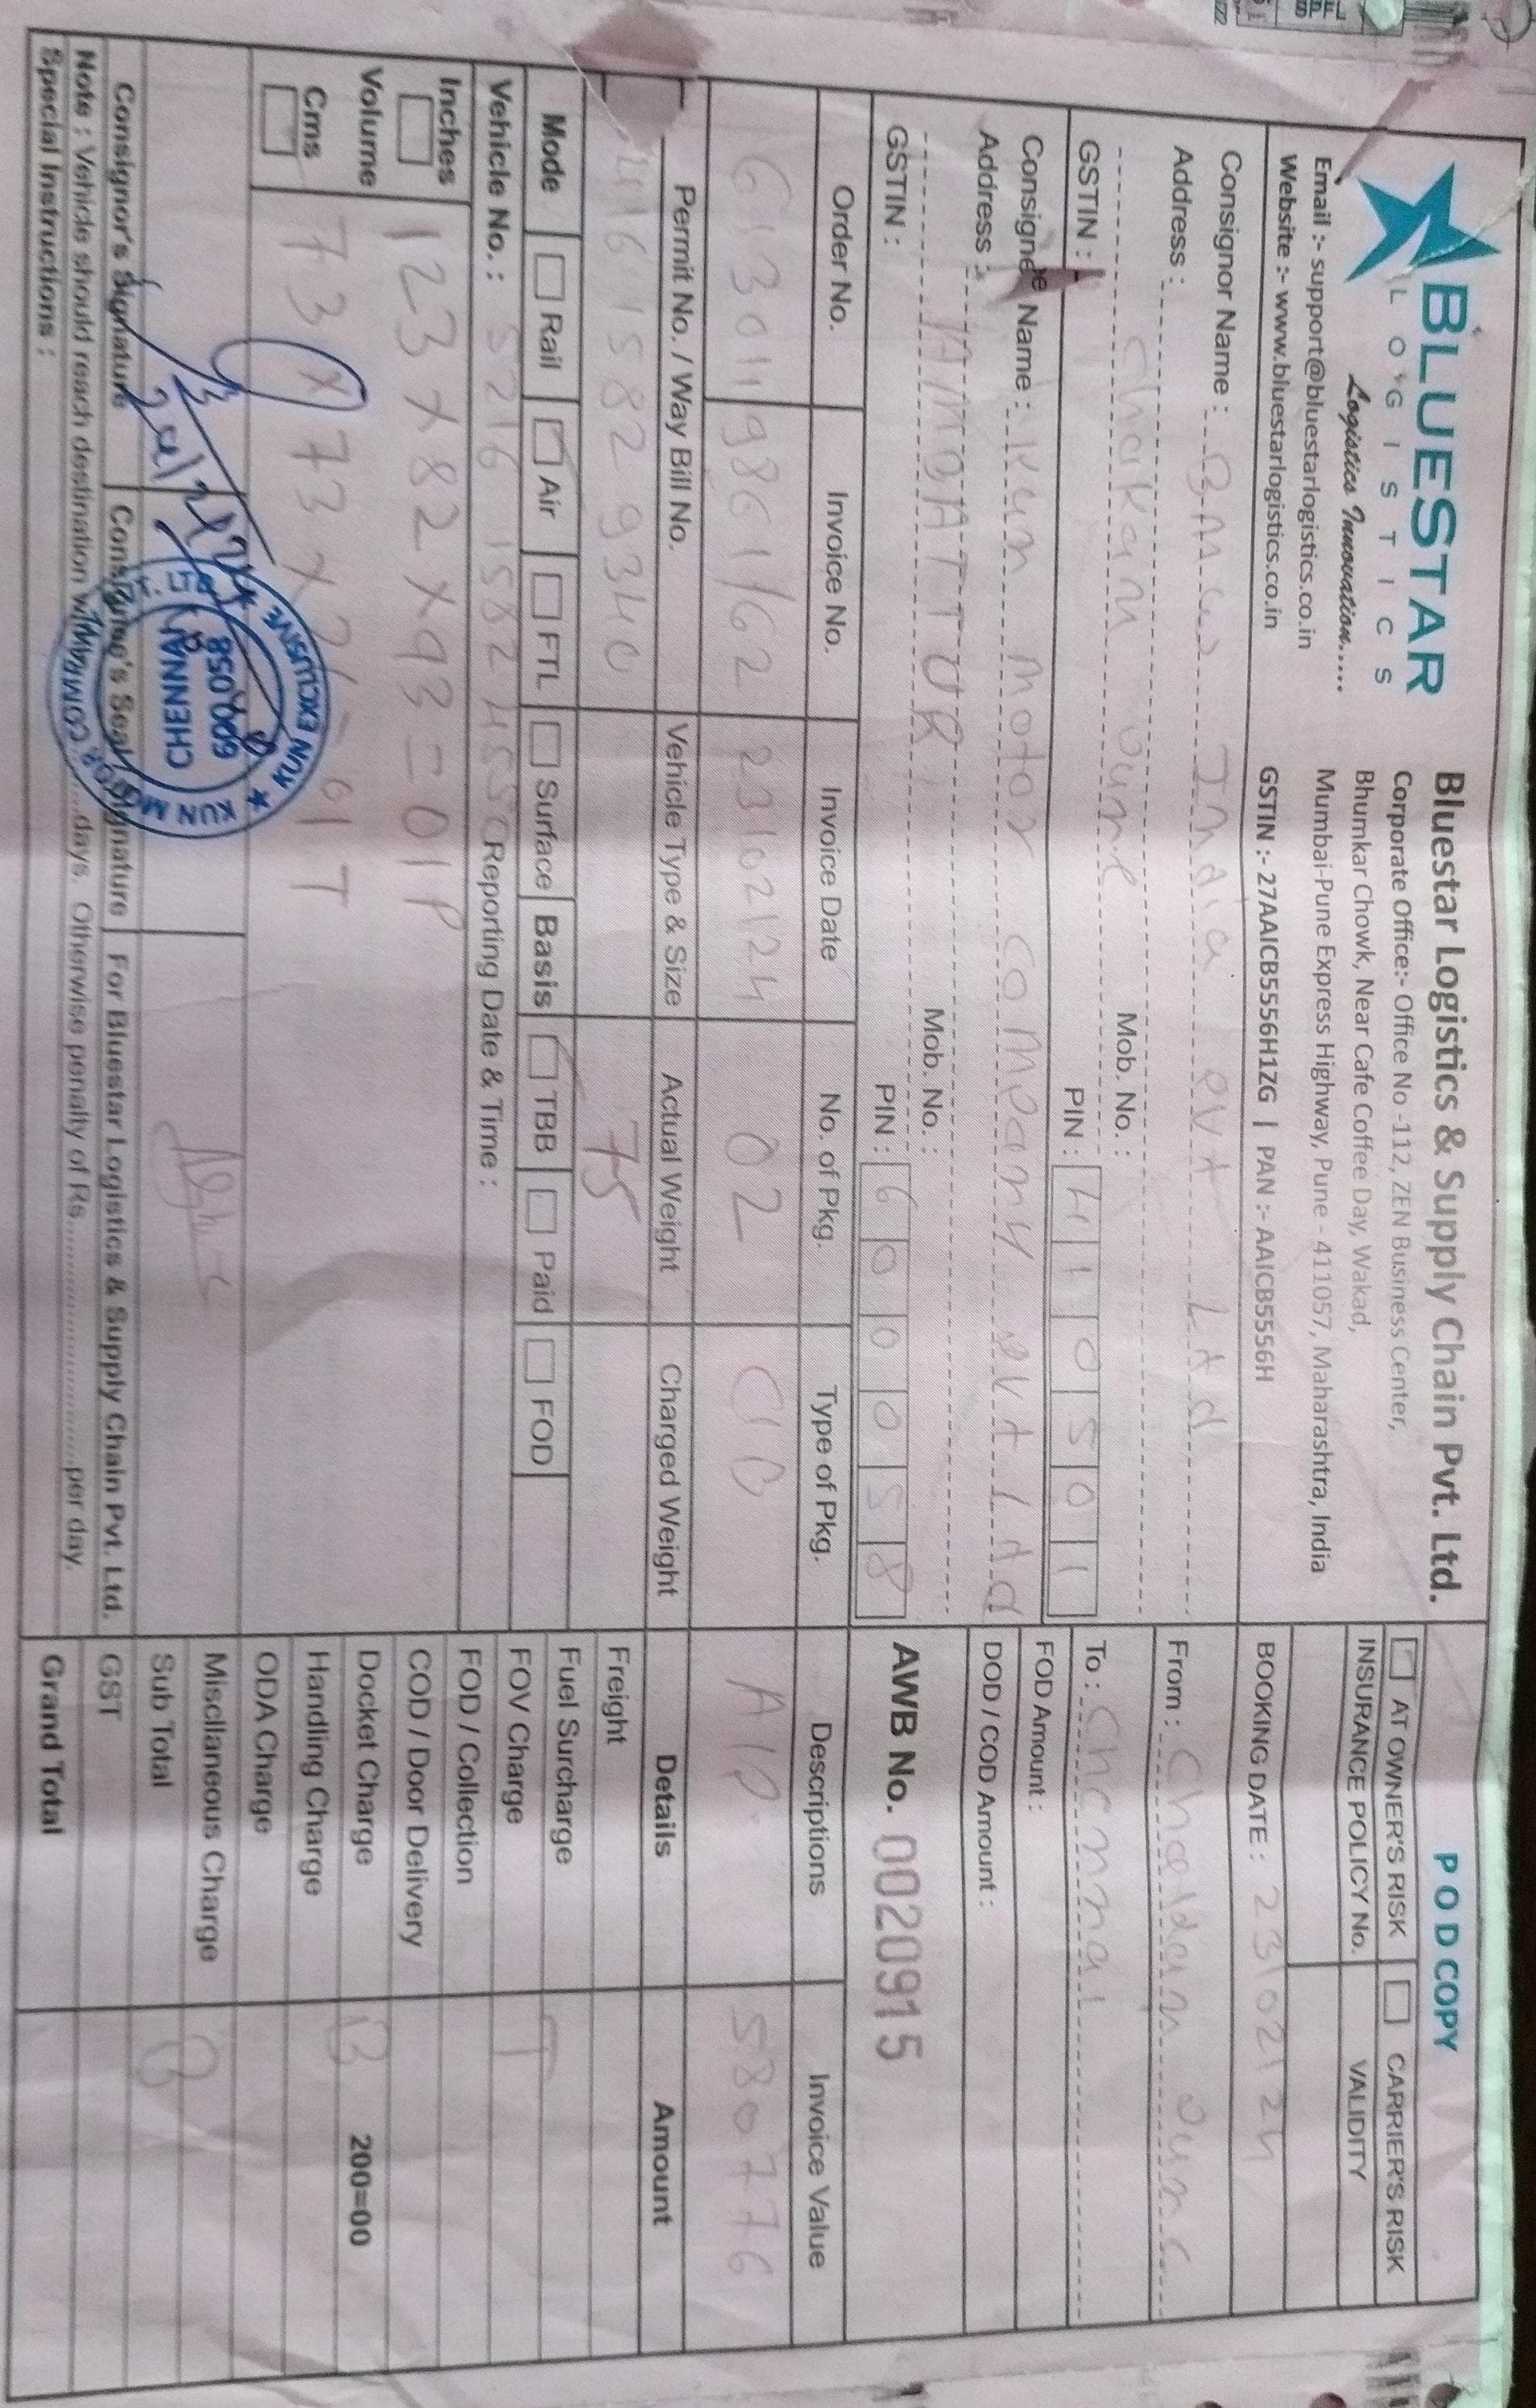 BLUESTAR
LOGISTICS
Logistics Innovation.....
Email :- support@bluestarlogistics.co.in
Website :- www.bluestarlogistics.co.in
Bluestar Logistics & Supply Chain Pvt. Ltd.
Corporate Office:- Office No -112, ZEN Business Center,
Bhumkar Chowk, Near Cafe Coffee Day, Wakad,
Mumbai-Pune Express Highway, Pune - 411057, Maharashtra, India
GSTIN :- 27AAICB5556H1ZG | PAN :- AAICB5556H
POD COPY
AT OWNER'S RISK CARRIER'S RISK
INSURANCE POLICY No. VALIDITY
BOOKING DATE : 23/02/24
Consignor Name : India Pvt Ltd
Address :
Chakan Pune Mob. No. :
GSTIN : PIN : 410501
From : Chakan Pune
To : Chennai
FOD Amount :
DOD / COD Amount :
Consignee Name : Kun Motor Company Pvt Ltd
Address :
AMBATTUR Mob. No. :
GSTIN : PIN : 600058
AWB No. 0020915
Order No. Invoice No. Invoice Date No. of Pkg. Type of Pkg. Descriptions Invoice Value
9861/62 23/02/24 02 580776
Permit No. / Way Bill No. Vehicle Type & Size Actual Weight Charged Weight Details Amount
416 1582 9340 75
Mode Rail Air FTL Surface Basis TBB Paid FOD
Vehicle No. : 5216 1582 Reporting Date & Time :
Inches
Volume
Cms
123 x 82 x 93 = 01 P
73 x 73 x 01 T
Freight
Fuel Surcharge
FOV Charge T
FOD / Collection
COD / Door Delivery
Docket Charge B 200=00
Handling Charge
ODA Charge
Miscllaneous Charge B
Sub Total
GST
Grand Total
KUN EXCLUSIVE
KUN MOTOR COMPANY PVT. LTD.
CHENNAI
600 058
Consignor's Signature Consignee's Seal / Signature For Bluestar Logistics & Supply Chain Pvt. Ltd.
Note : Vehicle should reach destination days. Otherwise penalty of Rs..............................per day.
Special Instructions :